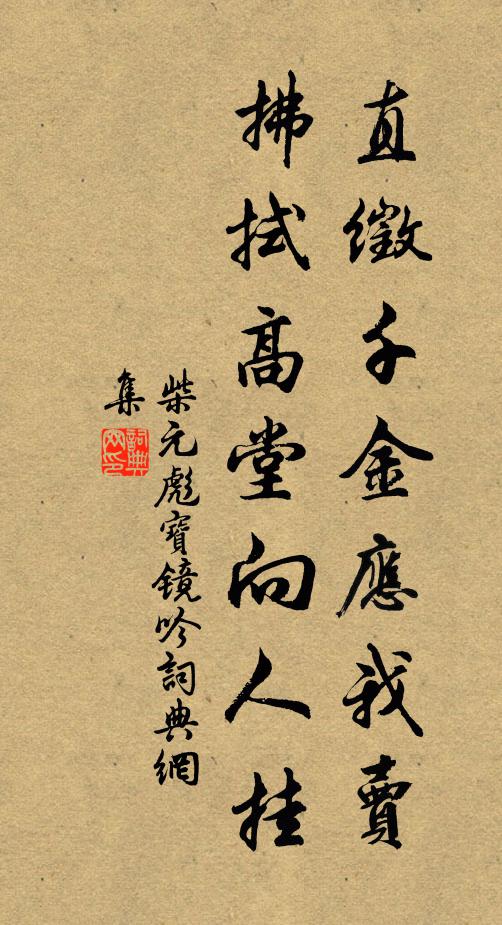 直徵千金應我賣
拂拭高堂向人挂
柴元彪寶鏡吟詞典網
集
詞典
网印